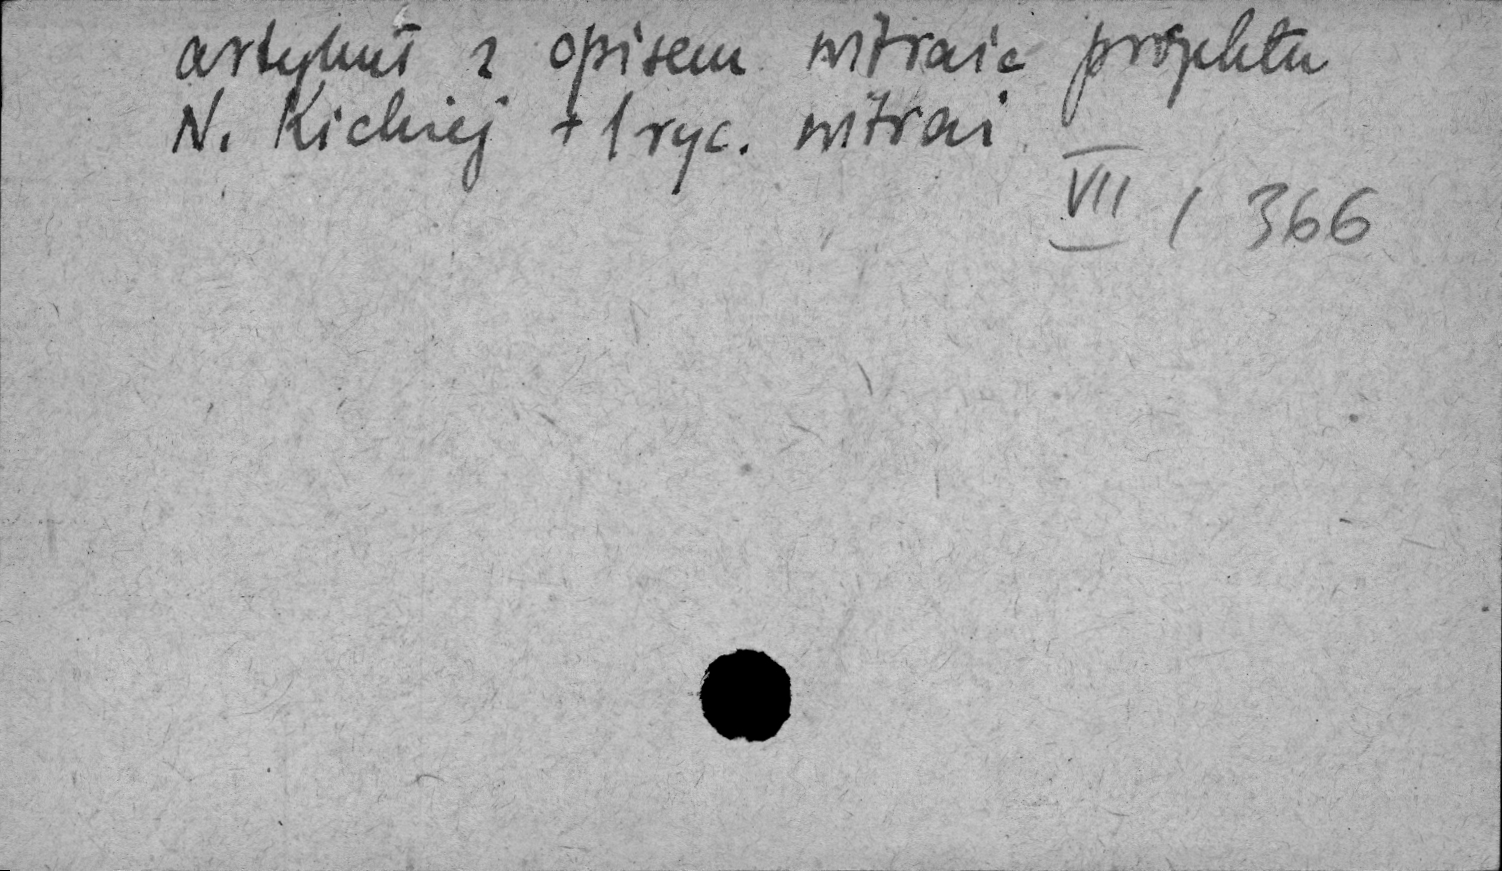 artykuł z opisem witraża projektu
N. Kickiej + 1 ryc. witraż
VII / 366